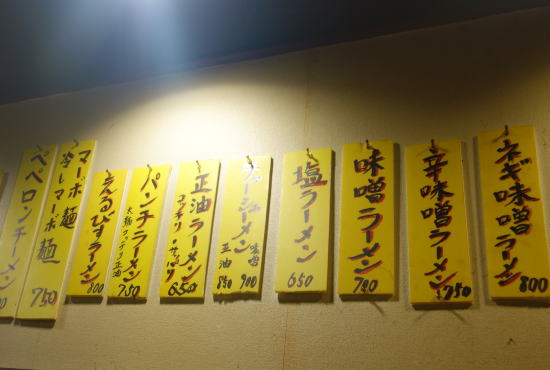 ネギ味噌ラーメン
800
辛味噌ラーメン
750
味噌ラーメン
700
塩ラーメン
650
チャーシューメン
味噌 900
正油 850
正油ラーメン
コッテリ・サッパリ
650
パンチラーメン
太麺コッテリ正油
750
えるびすラーメン
800
マーボ麺
冷しマーボ麺
750
ペペロンチーメン